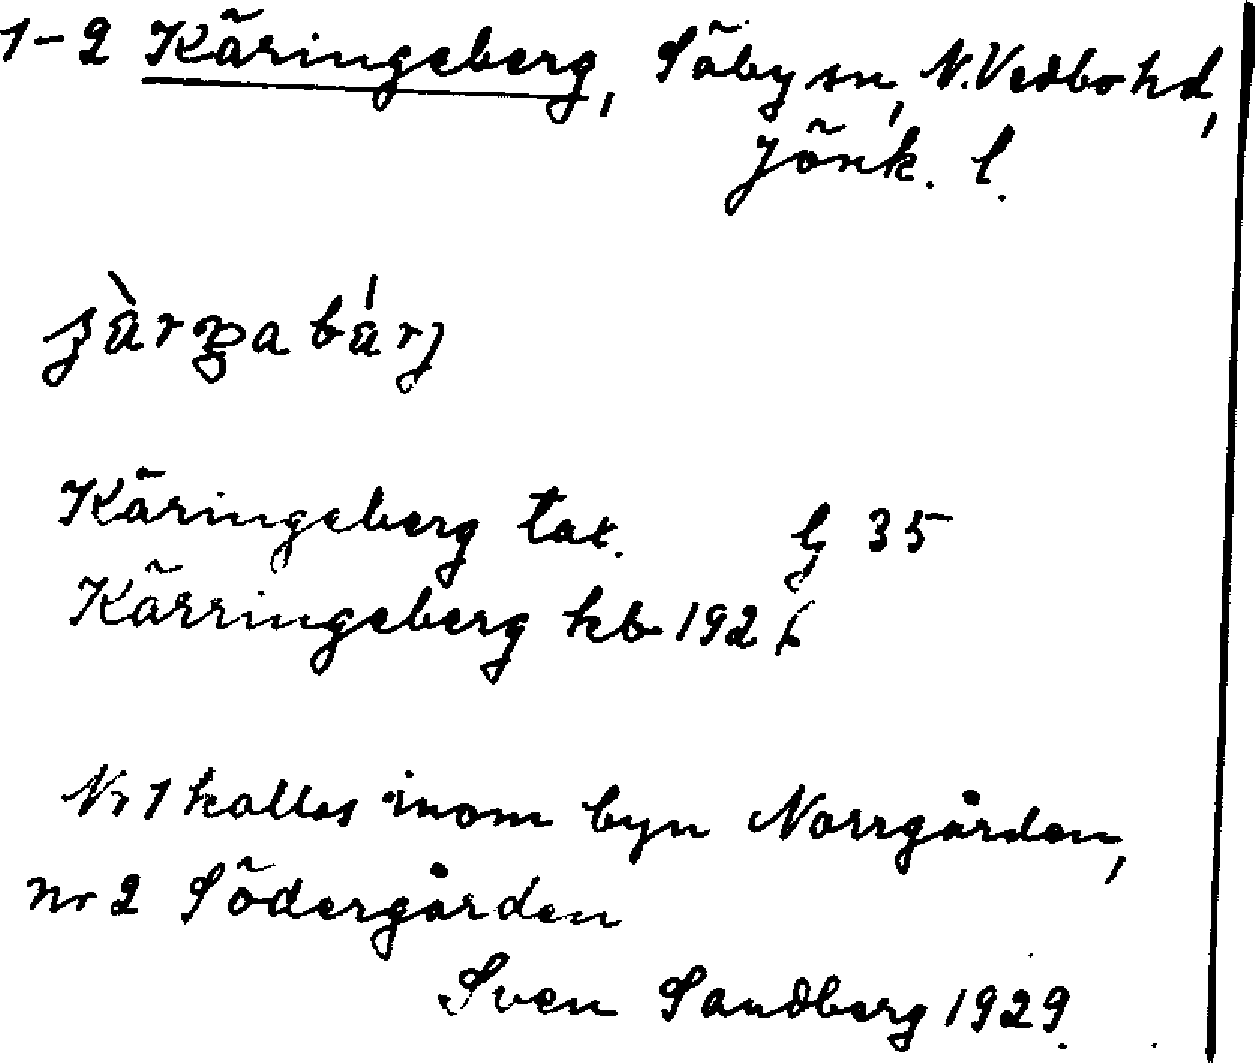 1-2 Käringeberg, Säby sn, N. Vedbo hd,
Jönk. l.
Käringeberg tax. G 35
Kärringeberg kb 1926
Nr 1 kallas inom byn Norrgården,
nr 2 Södergården
Sven Sandberg 1929.